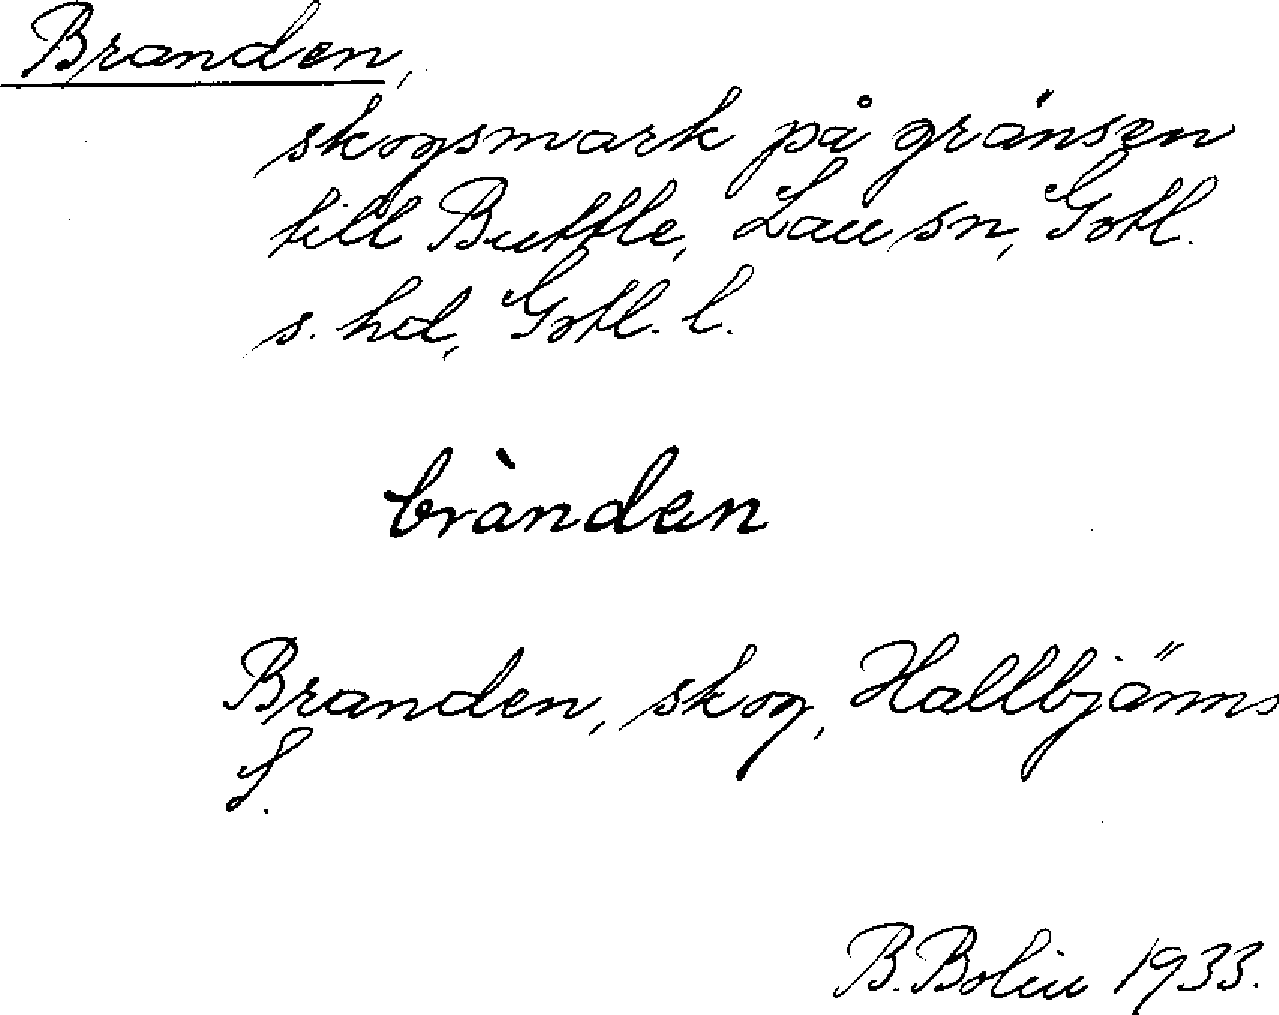 Branden,
skogsmark på gränsen
till Buttle, Lau sn, Gotl.
s. hd, Gotl. l.
brànden
Branden, skog, Hallbjänns
S.
B. Bolin 1933.